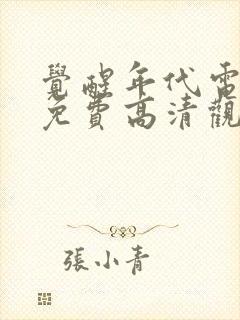 覺醒年代電
免費高清觀
張小青